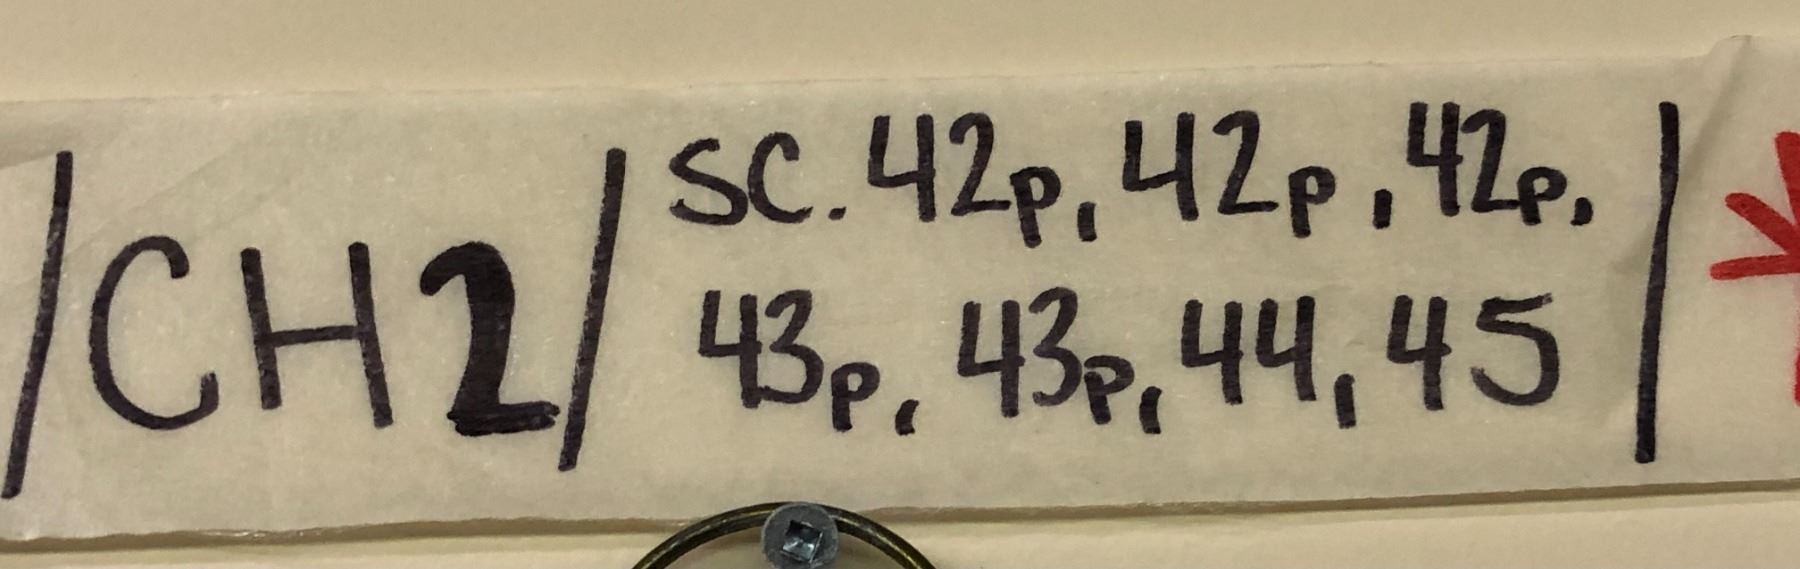 /CH2/ SC. 42p, 42p, 42p,
43p, 43p, 44, 45 |